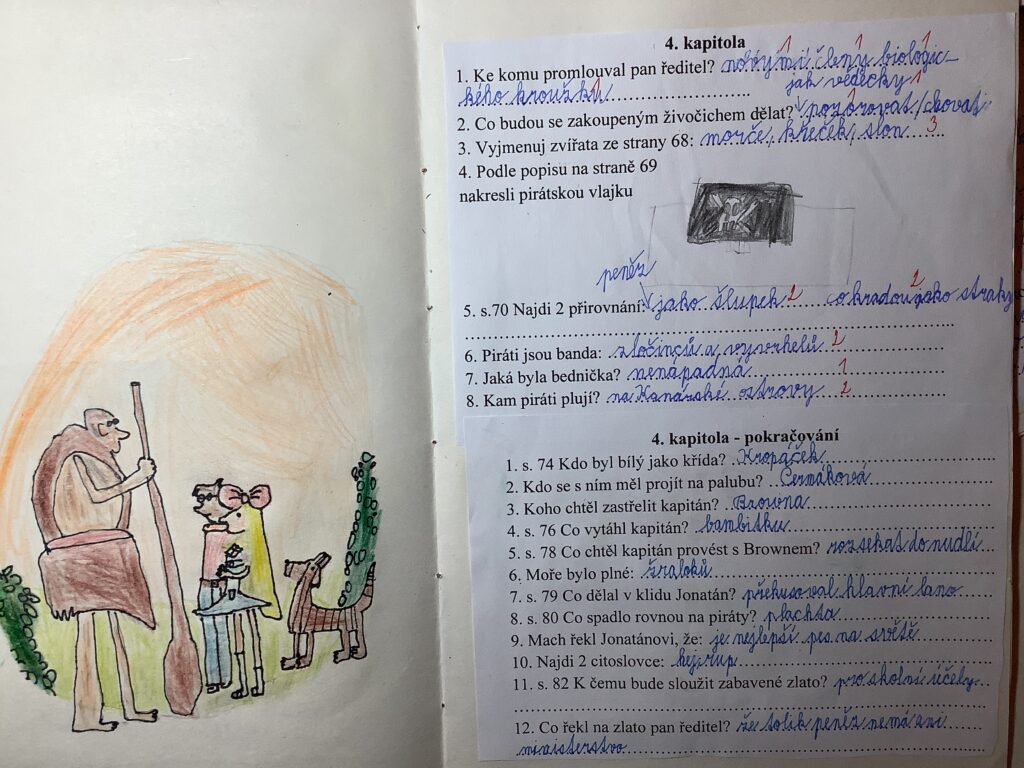 4. kapitola
1. Ke komu promlouval pan ředitel? novými členy biologic-
kého kroužku
jak vědecky
2. Co budou se zakoupeným živočichem dělat? pozorovat/chovat
3. Vyjmenuj zvířata ze strany 68: morče, křeček, slon 3
4. Podle popisu na straně 69
nakresli pirátskou vlajku
peněz
5. s.70 Najdi 2 přirovnání: jako šlupek 2 co kradou jako straky 2
6. Piráti jsou banda: zločinců a vyvrhelů 2
7. Jaká byla bednička? nenápadná 1
8. Kam piráti plují? na Kanárské ostrovy 2
4. kapitola - pokračování
1. s. 74 Kdo byl bílý jako křída? Kropáček
2. Kdo se s ním měl projít na palubu? Čermáková
3. Koho chtěl zastřelit kapitán? Browna
4. s. 76 Co vytáhl kapitán? bambitku
5. s. 78 Co chtěl kapitán provést s Brownem? rozsekat do nudlí
6. Moře bylo plné: žraloků
7. s. 79 Co dělal v klidu Jonatán? překusoval hlavní lano
8. s. 80 Co spadlo rovnou na piráty? plachta
9. Mach řekl Jonatánovi, že: je nejlepší pes na světě
10. Najdi 2 citoslovce: hej, rup
11. s. 82 K čemu bude sloužit zabavené zlato? pro školní účely
12. Co řekl na zlato pan ředitel? že tolik peněz nemá ani
ministerstvo